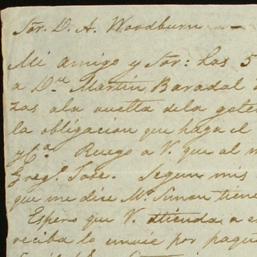 Sor. D. A. Woodburn —
Mi amigo y Sor: Las 5
a Dn. Martin Baradal
zas a la vuelta de la gole
la obligacion que haga el
y Ca. Ruego a V. que al
Greg.o José. Segun mis
que me dice Mr. Simon tiene
Espero que V. atienda a
reciba lo envie por paque